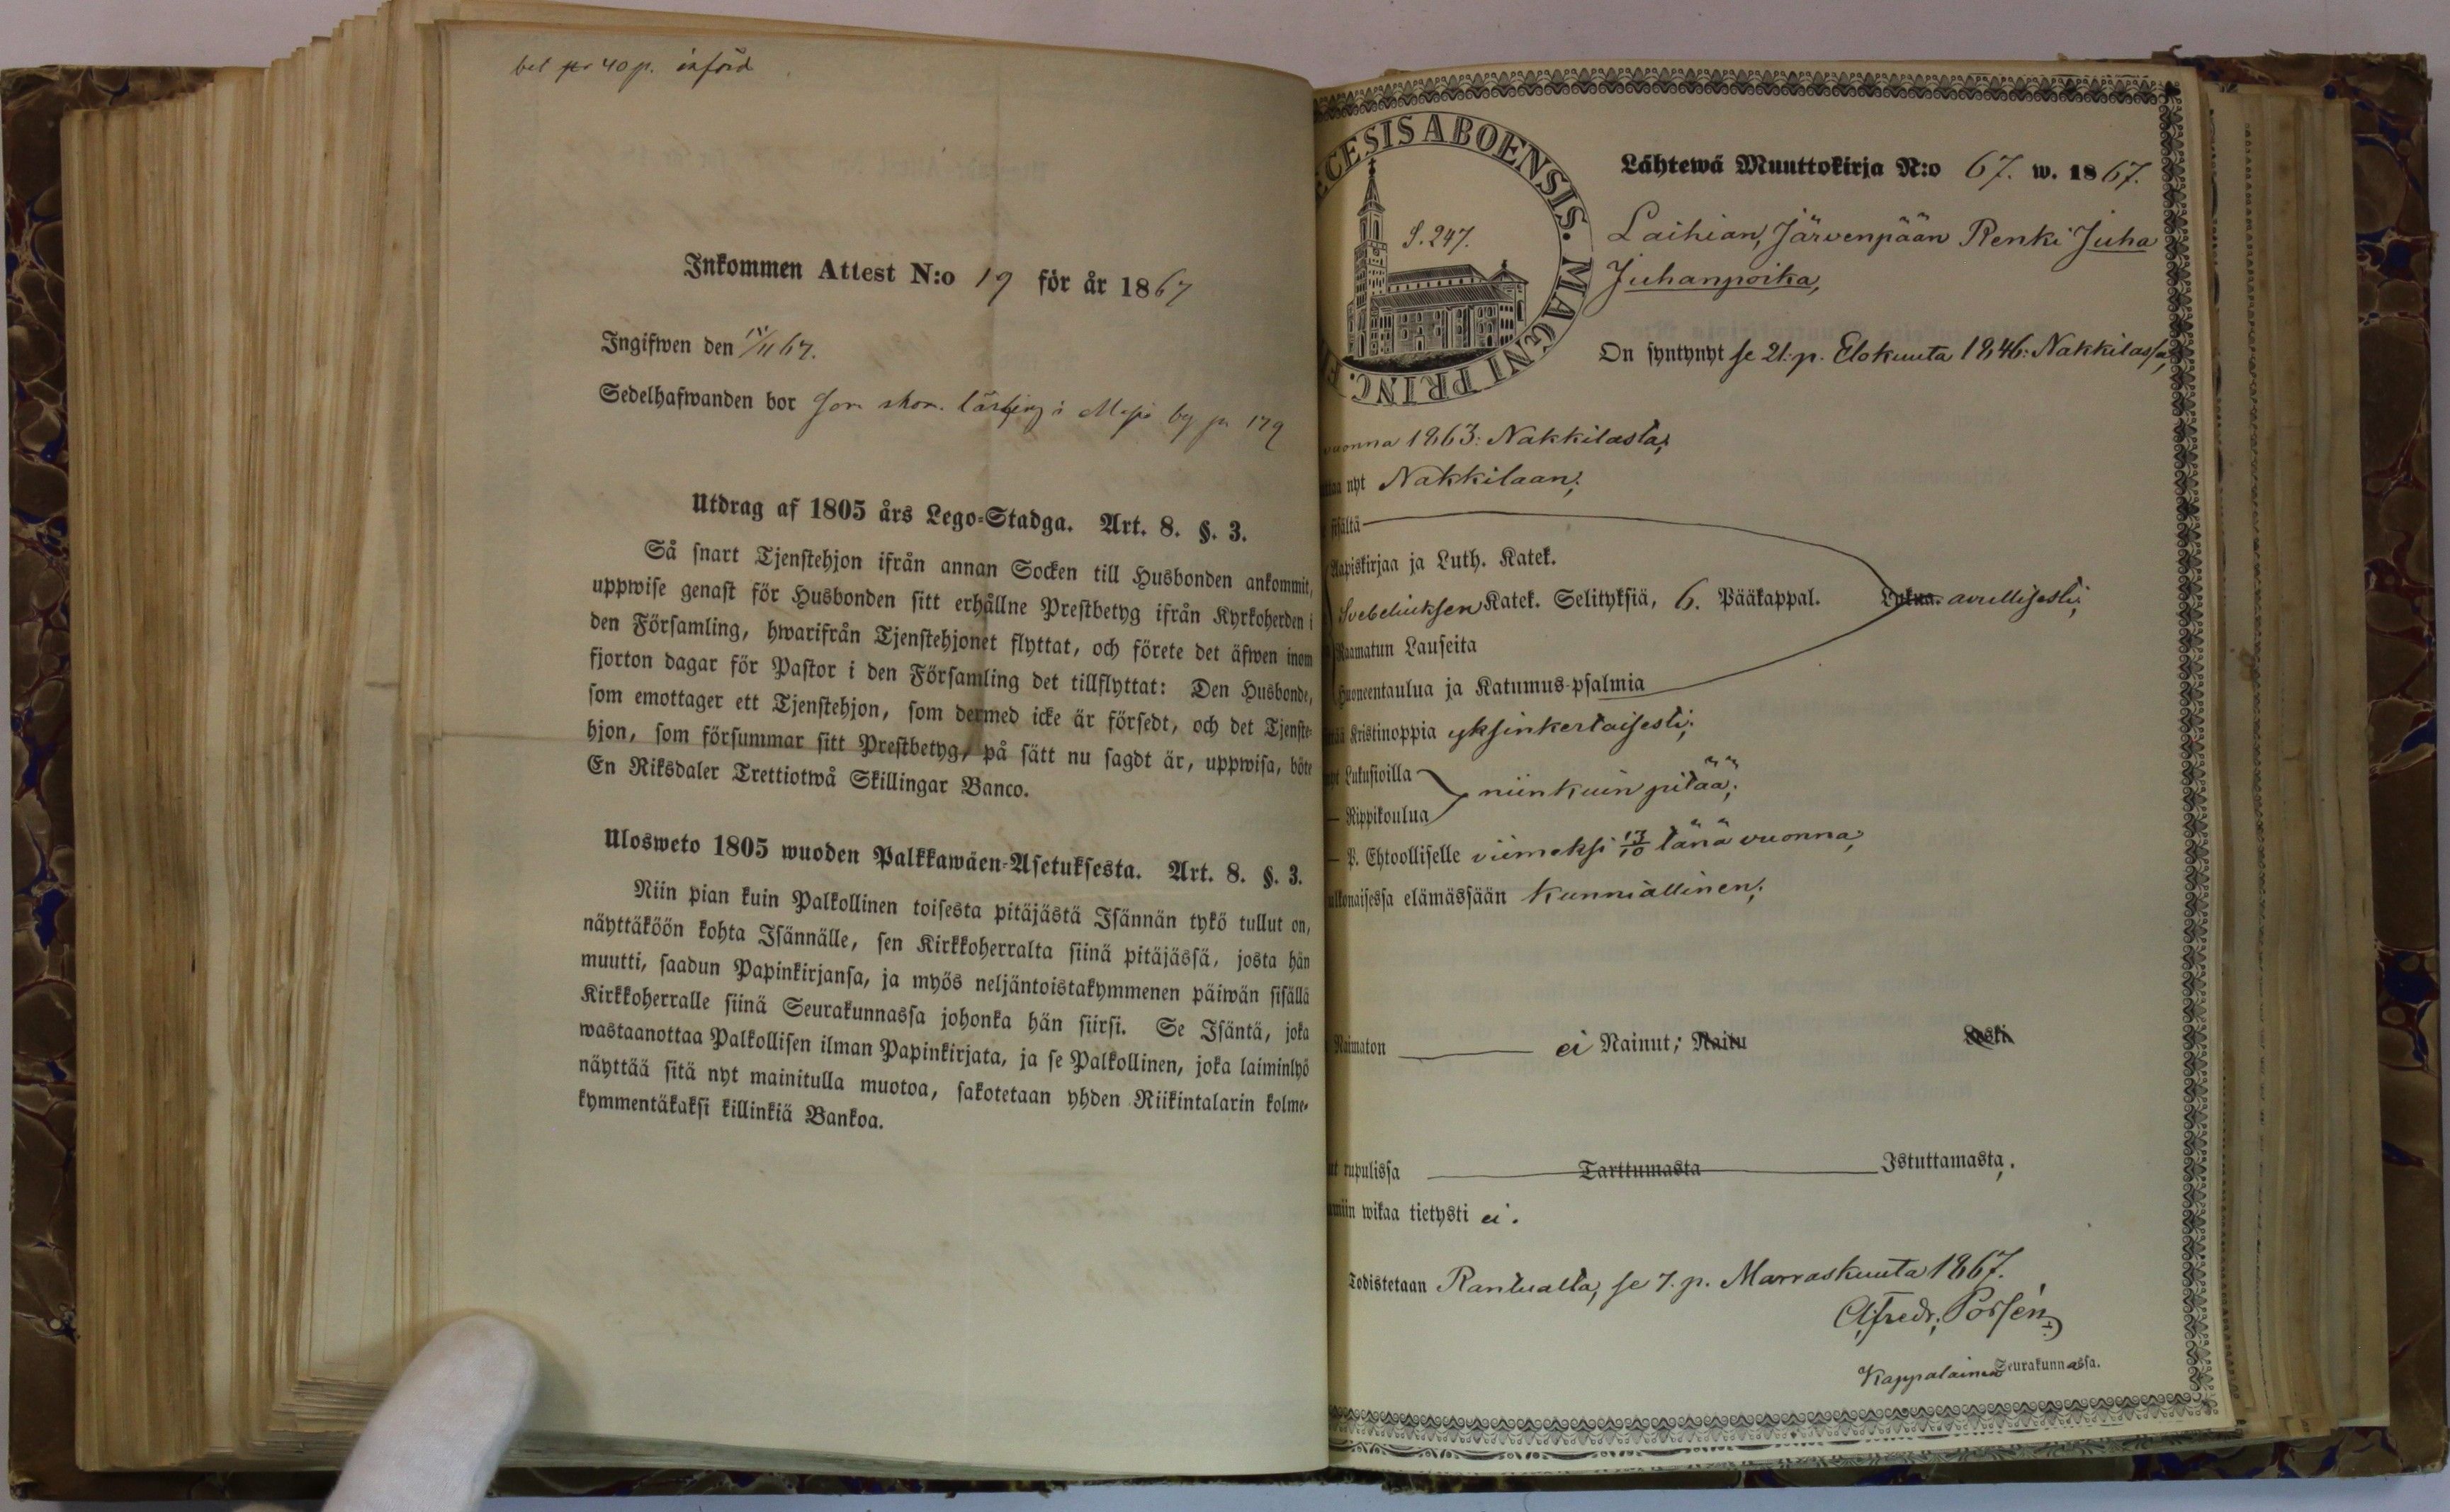 bet 40 p. införd
Inkommen Attest N:o 19 för år 1867
Ingifwen den /11 67.
Sedelhafwanden bor i by p. 179
Utdrag af 1805 års Lego-Stadga. Art. 8. §. 3.
Så snart Tjenstehjon ifrån annan Socken till Husbonden ankommit,
uppwise genast för Husbonden sitt erhållne Prestbetyg ifrån Kyrkoherden i
den Församling, hwarifrån Tjenstehjonet flyttat, och förete det äfwen inom
fjorton dagar för Pastor i den Församling det tillflyttat: Den Husbonde,
som emottager ett Tjenstehjon, som dermed icke är försedt, och det Tjenste-
hjon, som försummar sitt Prestbetyg, på sätt nu sagdt är, uppwisa, böte
En Riksdaler Trettiotwå Skillingar Banco.
Ulosweto 1805 wuoden Palkkawäen-Asetuksesta. Art. 8. §. 3.
Niin pian kuin Palkollinen toisesta pitäjästä Isännän tykö tullut on,
näyttäköön kohta Isännälle, sen Kirkkoherralta siinä pitäjässä, josta hän
muutti, saadun Papinkirjansa, ja myös neljäntoistakymmenen päiwän sisällä
Kirkkoherralle siinä Seurakunnassa johonka hän siirsi. Se Isäntä, joka
wastaanottaa Palkollisen ilman Papinkirjata, ja se Palkollinen, joka laiminlyö
näyttää sitä nyt mainitulla muotoa, sakotetaan yhden Riikintalarin kolme-
kymmentäkaksi killinkiä Bankoa.
ECESIS ABOENSIS. MAGNI PRINC. F
S. 247.
Lähtewä Muuttokirja N:o 67. w. 1867.
Laihian, Järvenpään Renki Juha
Juhanpoika,
On syntynyt se 21. p. Elokuuta 1846: Nakkilassa,
vuonna 1863: Nakkilasta;
nyt Nakkilaan;
sisältä
Aapiskirjaa ja Luth. Katek.
Svebeliuksen Katek. Selityksiä, 6. Pääkappal. Lukua. avullisesti;
Raamatun Lauseita
Huoneentaulua ja Katumus-psalmia
Kristinoppia yksinkertaisesti;
Lukusioilla
niinkuin pitää;
Rippikoulua
P. Ehtoolliselle viimeksi 13/10 tänä vuonna;
ulkonaisessa elämässään kunniallinen;
Naimaton ei Nainut; Naitu Leski
rupulissa Tarttumasta Istuttamasta,.
wikaa tietysti ei.
Todistetaan Rantualta, se 7. p. Marraskuuta 1867.
Alfredr. Porsén
Kappalainen Seurakunnassa.